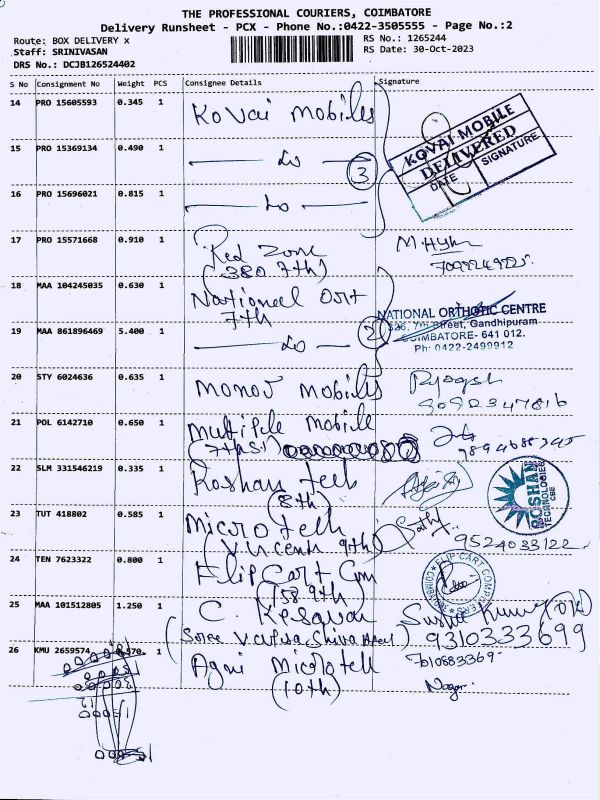 THE PROFESSIONAL COURIERS, COIMBATORE
Delivery Runsheet - PCX - Phone No.:0422-3505555 - Page No.:2
Route: BOX DELIVERY x
RS No.: 1265244
Staff: SRINIVASAN
RS Date: 30-Oct-2023
DRS No.: DCJB126524402
S No Consignment No Weight PCS Consignee Details Signature
14 PRO 15605593 0.345 1 Kovai Mobiles
KOVAI MOBILE
DELIVERED
DATE SIGNATURE
15 PRO 15369134 0.490 1
3
16 PRO 15696021 0.815 1
17 PRO 15571668 0.910 1 Red Zone
(380 7th)
18 MAA 104245035 0.630 1 National Ort
7th
NATIONAL ORTHOTIC CENTRE
326, 7th Street, Gandhipuram
COIMBATORE- 641 012.
Ph: 0422-2499912
19 MAA 861896469 5.400 1
2
20 STY 6024636 0.635 1 Mobiles
21 POL 6142710 0.650 1 Multiple Mobile
22 SLM 331546219 0.335 1 Roshan Tech
(8th)
ROSHAN TECHNOLOGIES CBE
23 TUT 418802 0.585 1 Microtech
9th)
9524033122
24 TEN 7623322 0.800 1 Flip Cart Com
(158 9th)
FLIP-CART COMPUTERS
25 MAA 101512805 1.250 1 C. Kesavan
Kumar
9310333699
26 KMU 2659574 1 Agni Microtech
(10th)